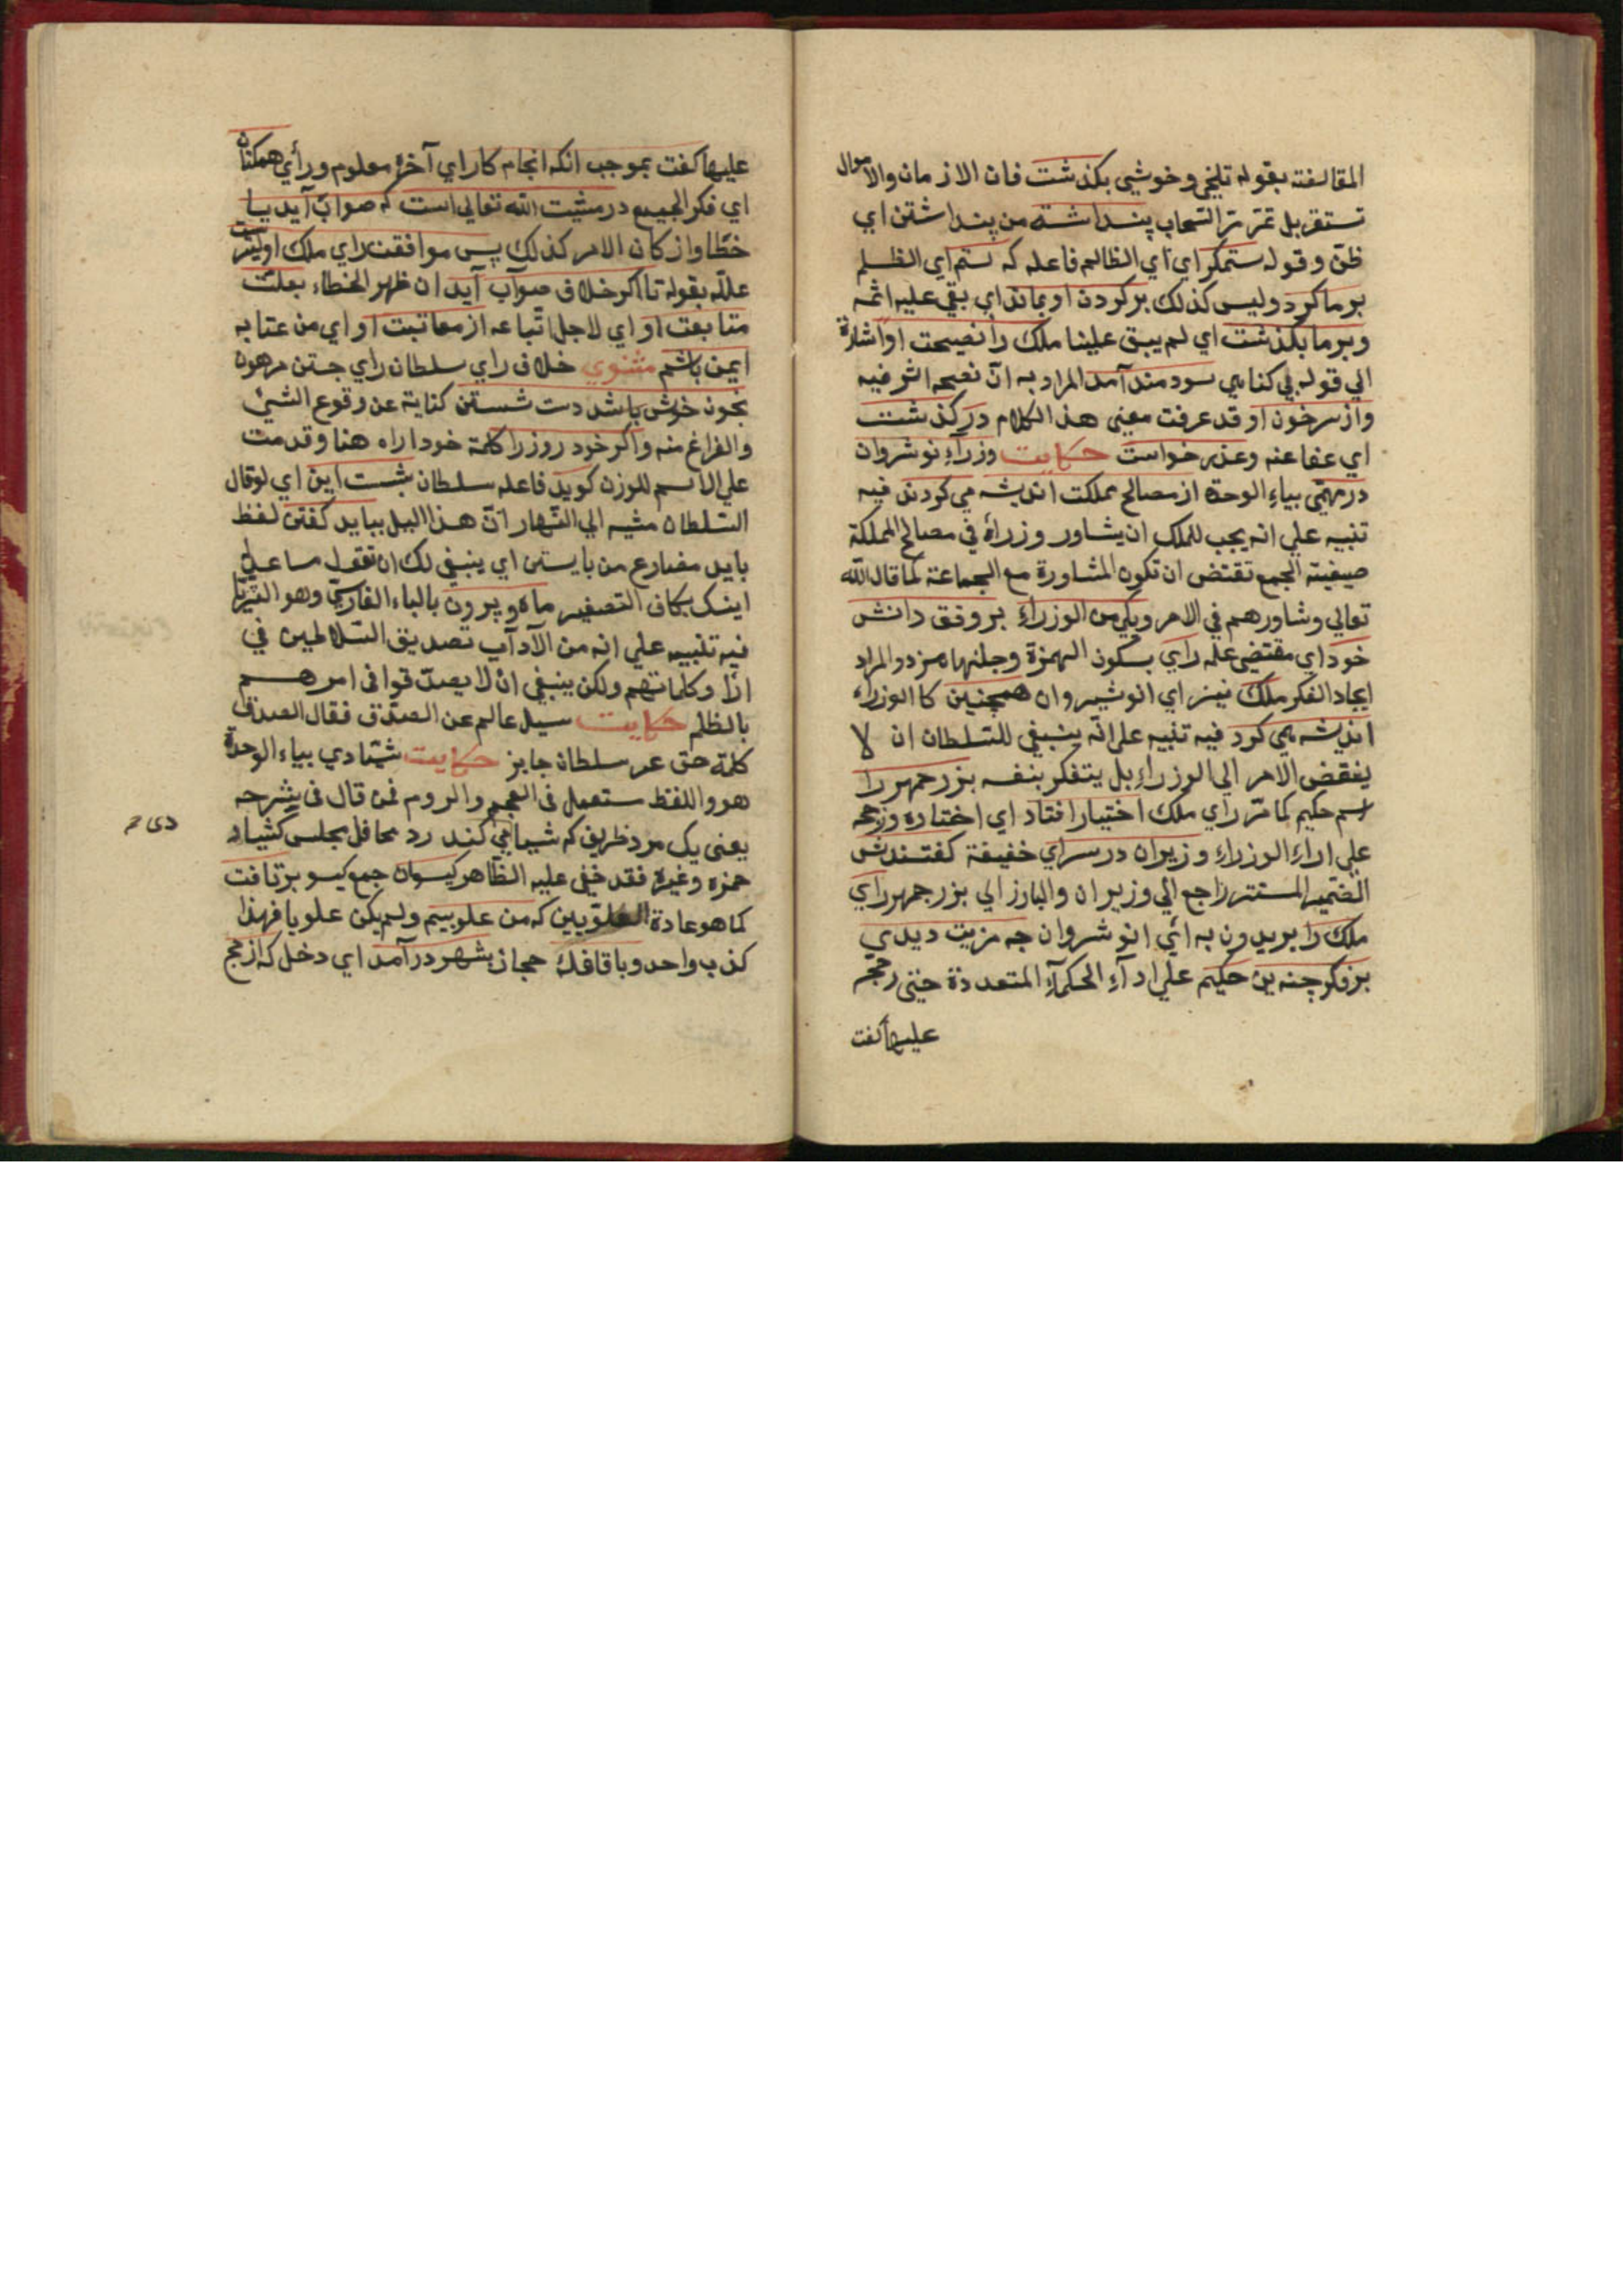 المقالفته بقوله تلخی وخوشی بکذشت فان الازمان والاموال
تستقر بل تمرّ مرّ السّحاب پنداشته من پنداشتن ای
ظنّ وقوله ستمکر ای ای الظالم فاعله که ستم ای الظلم
بر ما کرد ولیس کذلك بر کردن او بماند ای بقی علیه اثمه
وبر ما بکذشت ای لم یبق علینا ملك را نصیحت او اشارة
الی قوله بی کناهی سودمند آمد المراد به انّ نصیحه اثر فیه
واز سر خون او قد عرفت معنی هذا الکلام در کذشت
ای عفا عنه وعذر خواست حکایت وزرآء نوشروان
در مهمّی بیاء الوحدة از مصالح مملکت اندیشه می کردند فیه
تنبیه علی انه یجب للملك ان یشاور وزرأه فی مصالح المملکة
صیغیته الجمع تقتض ان تکون المشاورة مع الجماعة کما قال اللّه
تعالی وشاورهم فی الامر ویکی من الوزراء بر وفق دانش
خود ای مقتضی علمه رایی بسکون الهمزة وجلنها همزد والمراد
ایجاد الفکر ملك نیز ای انوشیروان همچنین کا الوزراء
اندیشه همی کرد فیه تنبیه علی انّه ینبغی للسّلطان ان لا
یفقض الامر الی الوزراء بل یتفکر بنفسه بزرجمهر را
اسم حکیم کما مرّ رای ملك اختیار افتاد ای اختاره ورجحه
علی اراء الوزراء وزیران در سرای خفیفة کفتندش
الضّمیر المستتر راجع الی وزیران والبارز الی بزرجمهر رای
ملك را بریدون به ائی انوشروان چه مزیت دیدی
بر فکر چندین حکیم علی ارآء الحکمآء المتعددة حیتی رجحتم
علیها کفت
علیها کفت بموجب انکه انجام کار ای آخره معلوم ورأی همکنان
ای فکر الجمیع در مشیت اللّه تعالی است که صواب آید یا
خطا واز کان الامر کذلك پس موافقت رای ملك اولیترست
علله بقوله تا اکر خلاف صوآب آید ان ظهر الخطاء بعلت
متابعت او ای لاجل اتّباعه از معاتبت او ای من عتابه
ایمن باشم مثنوی خلاف رای سلطان رای جستن مرهون
بخون خوش باشد دست شستن کنایة عن وقوع الشیٔ
والفراغ منه واکر خود روز را کلمة خود اراه هنا وقد مت
علی الاسم للوزن کوید فاعله سلطان شبست این ای لو قال
السّلطان مشیه الی النّهار انّ هذا الیل بباید کفتن لفظ
باید مضارع من بایستن ای ینبغی لك ان تقول مسا عل
اینك بکاف التصغیر ماه وپرون بالباء الفارسّی وهو الثّریّا
فیه تنبیه علی انه من الآدآب تصدیق السّلاطین فی
ارٔا وکلماتهم ولکن ینبغی ان لا یصدّقوا فی امرهم
بالظلم حکایت سیل عالم عن الصدّق فقال الصدق
کلمة حق عر سلطان جایز حکایت شیّادی بیاء الوحدة
هوو اللفظ ستعمل فی العجم والروم فمن قال فی شرحه
یعنی یك مرد ظریف که شیبا می کند رد محافل مجلس کشیاد
حمزه وغیره فقد خفی علیه الظاهر کیسوان جمع کیسو برتافت
کما هو عادة العلوّیین که من علویم ولم یکن علویا فهذا
کذب واحد وبا قافلۀ حجاز بشهر درآمد ای دخل که از حج
دی م